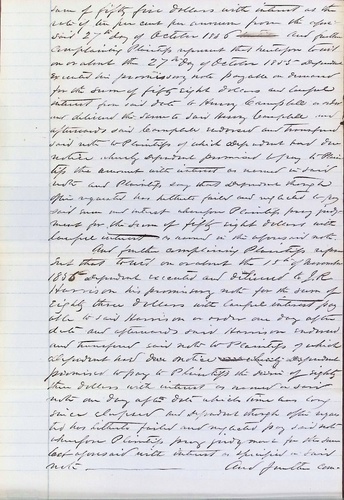 sum of fifty five dollars with interest at the
rate of ten per cent per annum from the afore
said 27th day of October 1856 And further
complaining Plaintiffs represent that heretofore to wit
on or about the 27th day of October 1855 dependent
executed his promissory note payable on demand
for the sum of fifty eight dollars and lawful
interest from said date to Henry Campbell or order
and delivered the same to said Henry Campbell and
afterwards said Campbell endorsed and transferred
said note to Plaintiffs of which dependent had due
notice whereby dependent promised to pay to Plain
tiffs the amount with interest as named in said
note and Plaintiffs say that Dependent though
often requested has hitherto failed and neglected to pay
said sum and interest wherefore Plaintiffs pray judg
ment for the sum of fifty eight dollars with
lawful interest as named in the aforesaid note
And further complaining Plaintiffs repre
sent that to wit on or about the 18th of November
1856 dependent executed and delivered to J.R.
Harrison his promissory note for the sum of
Eighty three dollars with lawful interest pay
able to said Harrison or order one day after
date and afterwards said Harrison endorsed
and transferred said note to Plaintiffs of which
dependent had due notice whereby dependent
promised to pay to Plaintiffs the sum of eighty
three dollars with interest as named in said
note one day after date which time has long
since elapsed and dependent though often reques
ted has hitherto failed and neglected to pay said note
wherefore Plaintiffs pray judgment for the sum
last aforesaid with interest as specified in said
note And further com